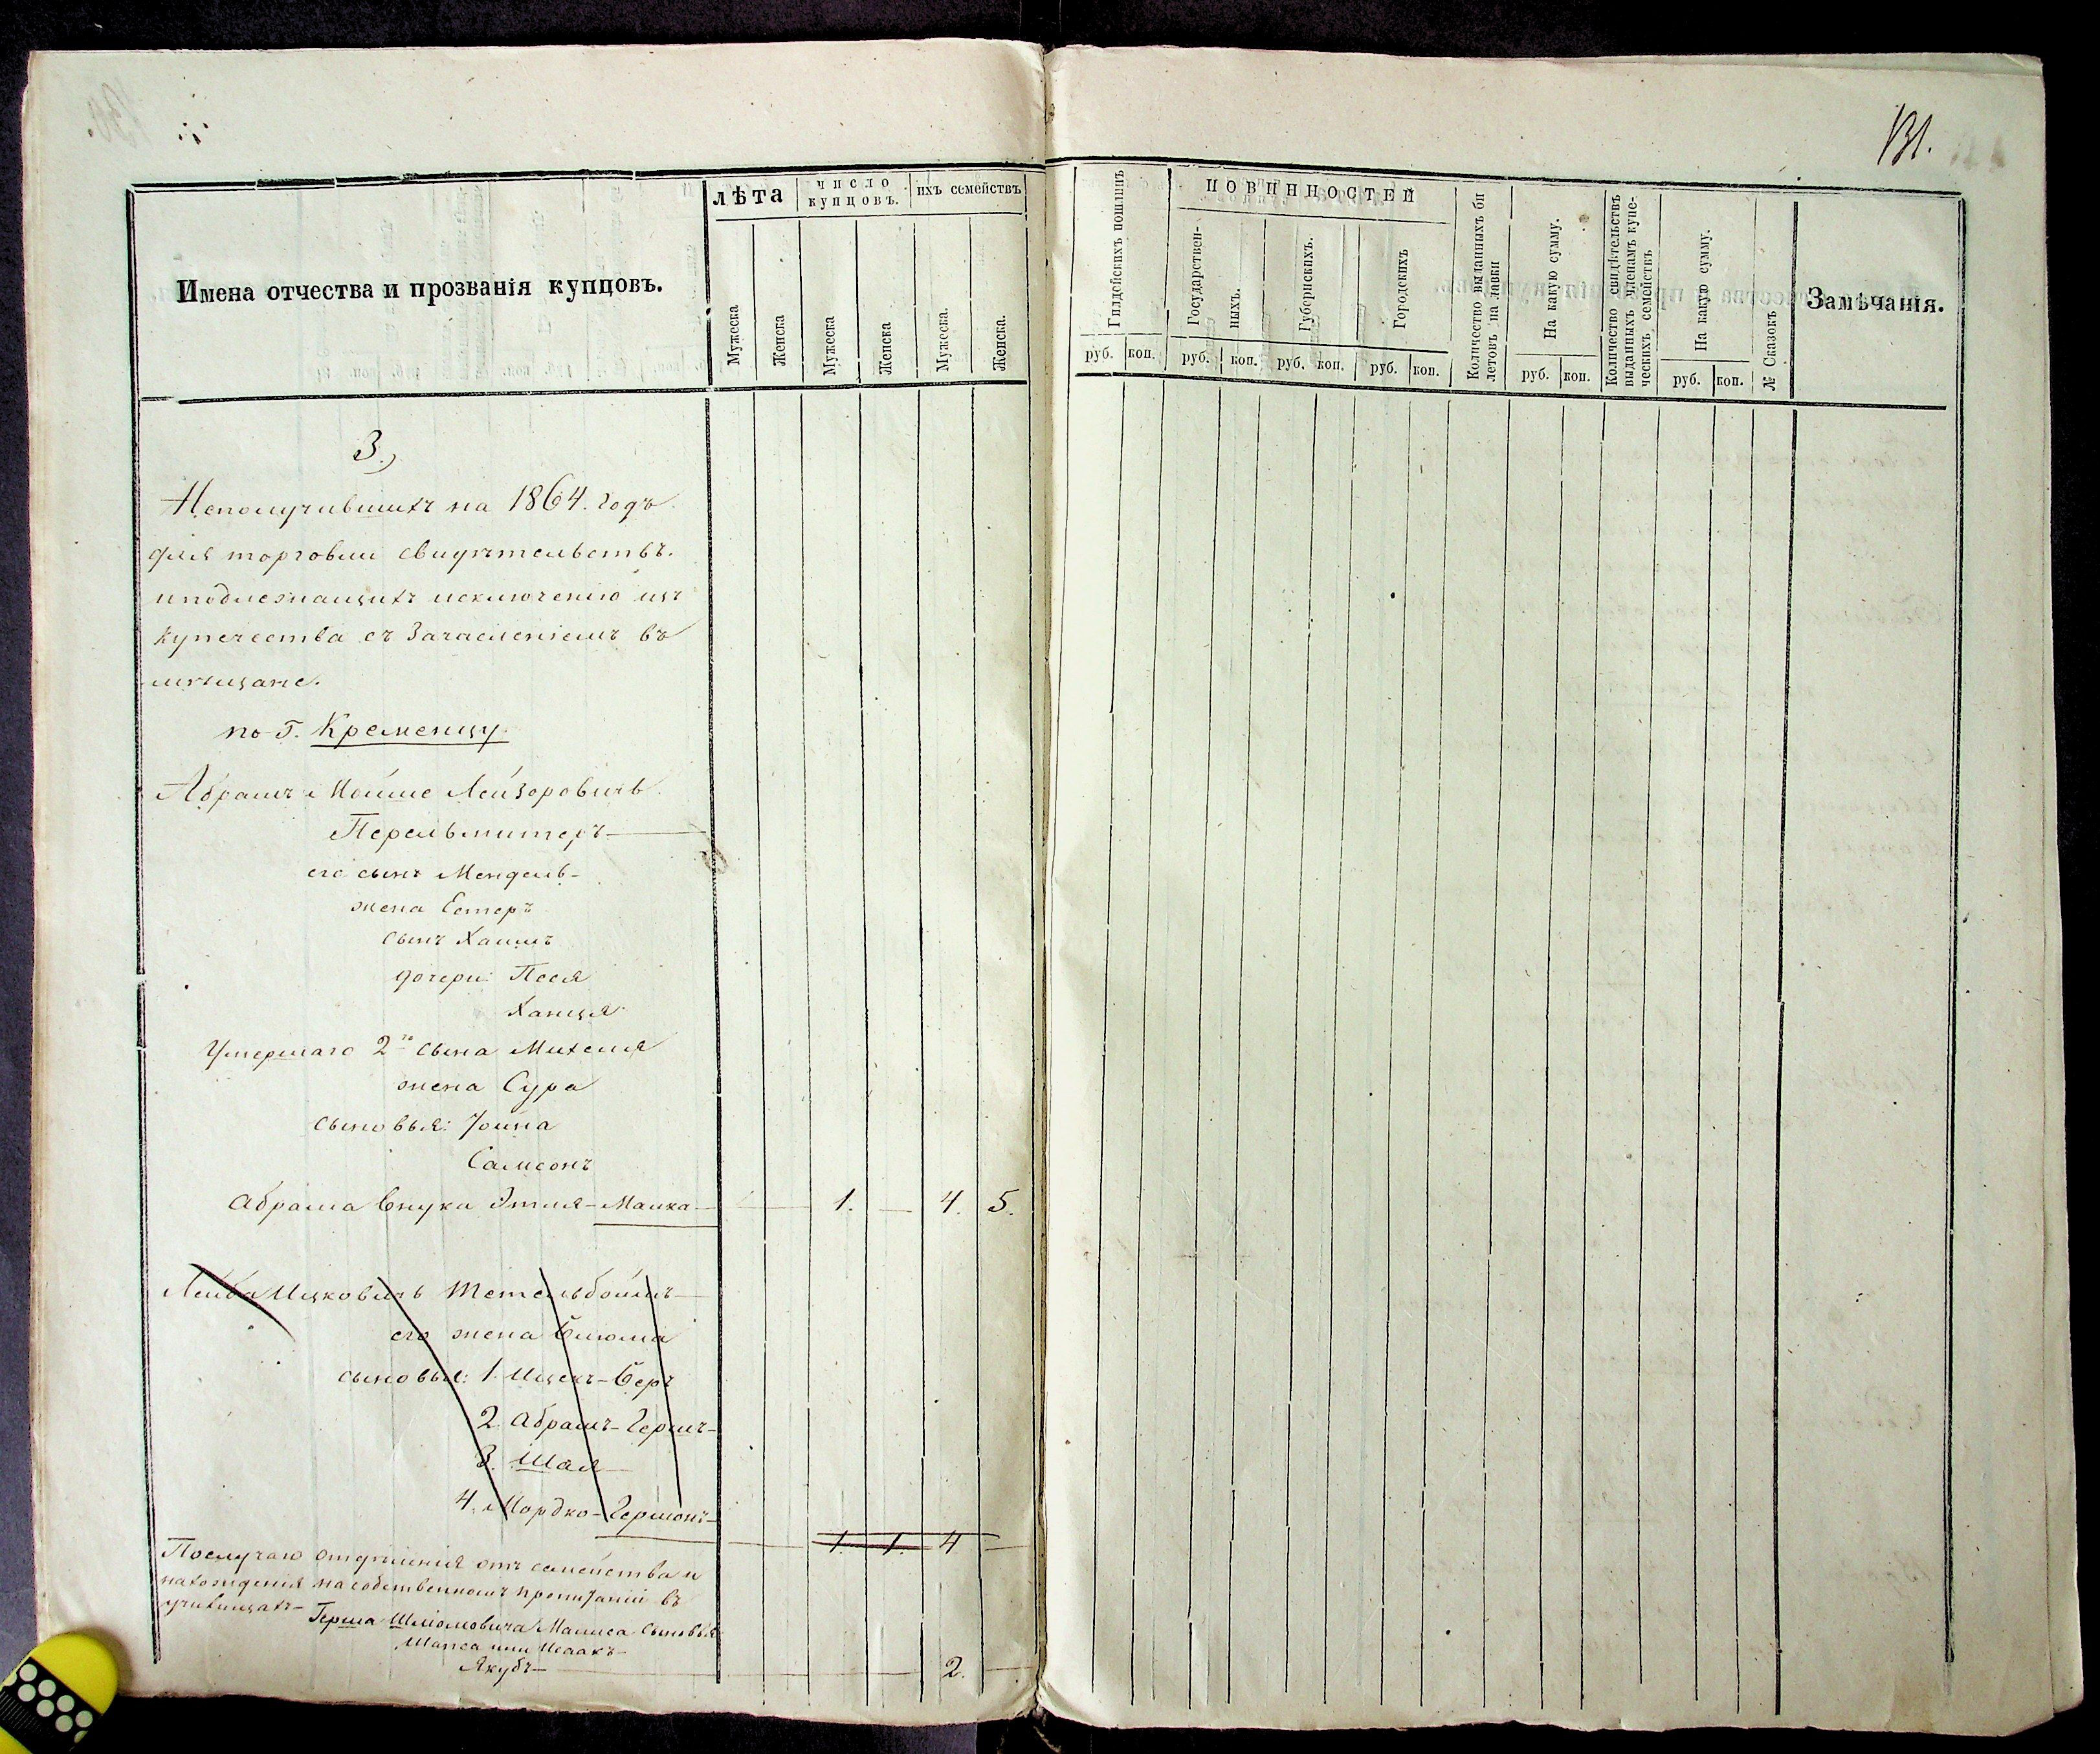 131.
Имена отчества и прозванія купцовъ.
лѣта
число купцовъ.
ихъ семействъ
Мужеска
Женска
Мужеска
Женска
Мужеска.
Женска.
Гилдейскихъ пошлинъ
ПОВИННОСТЕЙ
Государствен-
ныхъ.
Губернскихъ.
Городскихъ
Количество выданныхъ би
летовъ на лавки
На какую сумму.
Количество свидѣтельствъ
выданныхъ членамъ купе-
ческихъ семействъ
На какую сумму.
№ Сказокъ
Замѣчанія.
руб. коп. руб. коп. руб. коп. руб. коп. руб. коп. руб. коп.
3.,
Неполучившихъ на 1864. годъ
для торговли свидѣтельствъ.
и подлежащихъ исключенію изъ
купечества съ зачисленіемъ въ
мѣщане.
по Г. Кременцу.
Абрамъ Мойше Лейзоровичь
Перельмитеръ
его сынъ Мендель
жена Естеръ
сынъ Хаимъ
дочери: Песя
Ханця
Умершаго 2го сына Михеля
жена Сура
сыновья: Іойна
Самсонъ
Абрама внуки Этля-Малка 1. 4. 5.
Лейба Ицковичь Тетельбоймъ
его жена Блюма
сыновья: 1. Ицекъ-Беръ
2. Абрамъ-Гершъ-
3. Шая
4. Мордко-Гершонъ 1. 1. 4
По случаю отдѣленія отъ семейства и
нахожденія на собственномъ пропитаніи въ
училищахъ-
Герша Шліомовича Малиса сыновья
Шапса или Исаакъ
Якубъ 2.